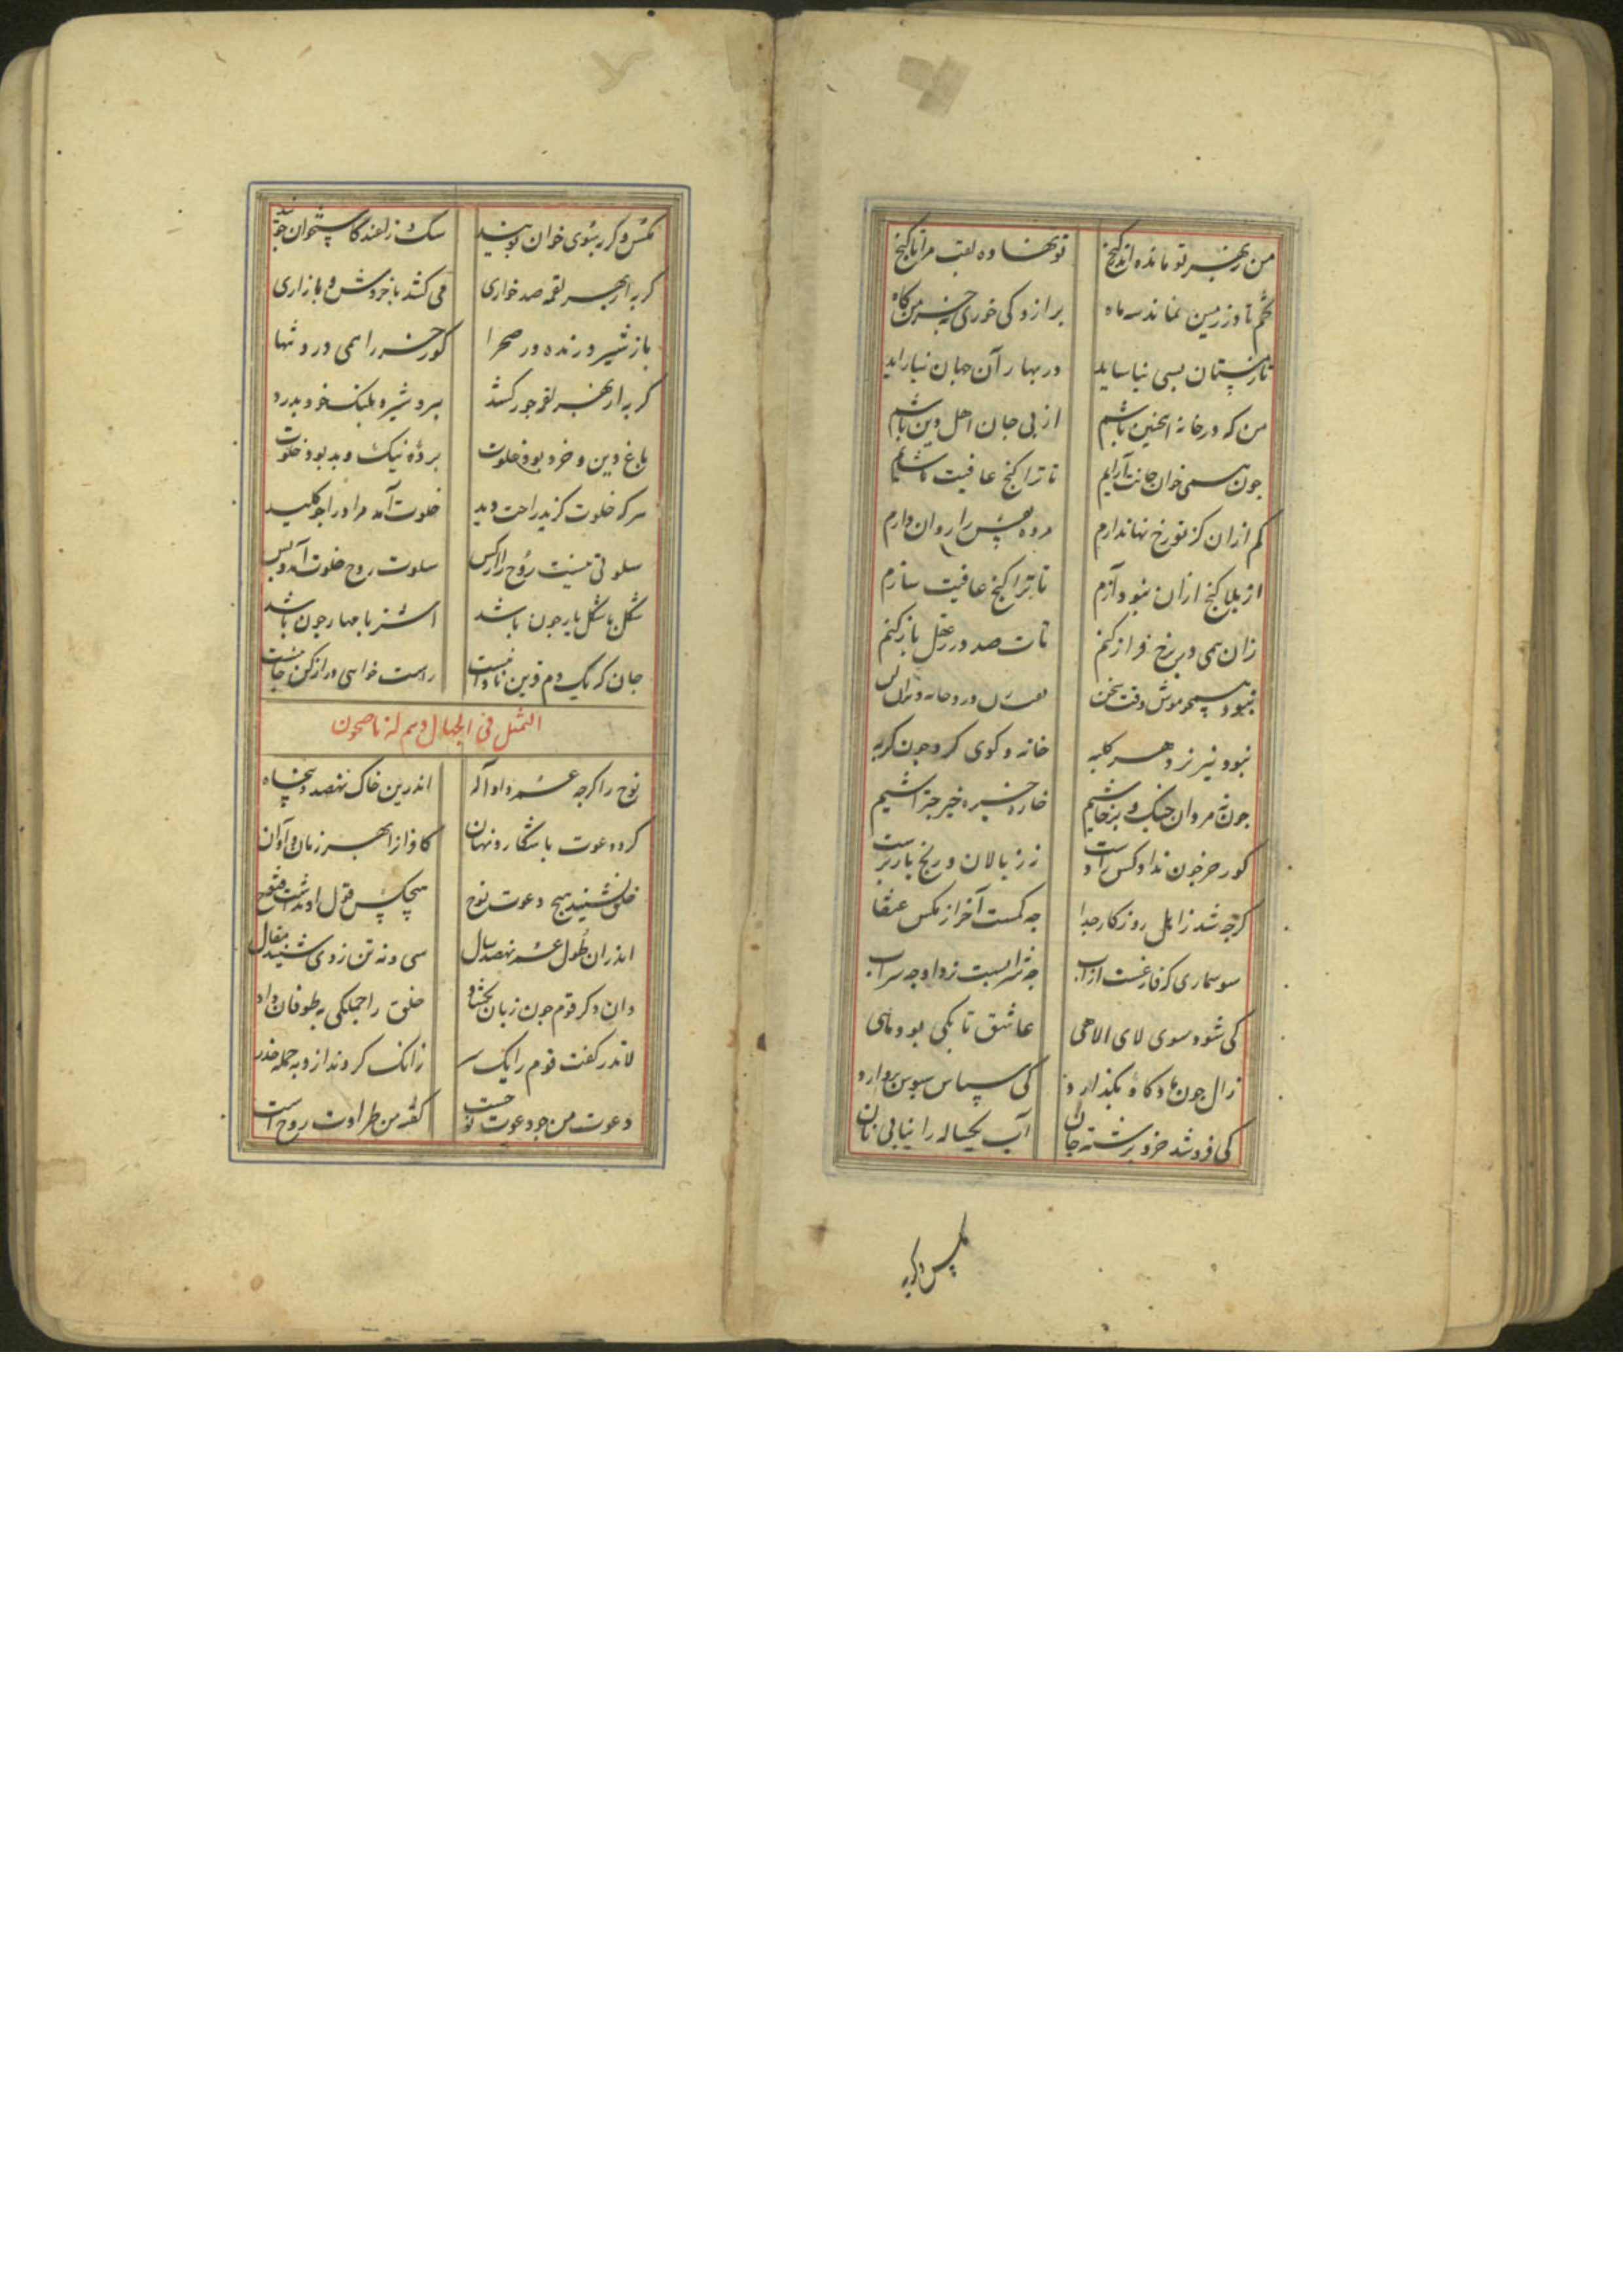 من ز بهر تو مانده اندر کنج تو نهاده لقب مرا ناکنج
تخم تا در زمین نماند سه ماه بر ازو کی خوری به خرمن کاه
تا زمستان بسی نیاساید در بهار آن جهان نیاراید
من که در خانه اینچنین باشم از پی جان اهل دین باشم
چون همی خوان جانت آرایم تا ترا کنج عافیت شایم
کم ازان کز تو رخ نهان دارم مرده نفس را روان دارم
از بلا کنج ازان نبود آزم تا ترا کنج عافیت سازم
زان همی در برخ فراز کنم تات صد در ز عقل باز کنم
نبود همچو موش وقت سخن
نبود نیز نزد هر کلبه خانه و کوی کرد چون کربه
چون نه مردان جنک و پرخاشیم خاره خیره خیر چتراشیم
کور خر خون نداد کس را دست زر ز پالان و رنج بار برست
کرچه شد ز اهل روزکار جدا چه کمست آخر از مکس عنقا
سوسماری که فارغست از آب چه شرابست نزد او چه سراب
کی شود سوی لای الاهی عاشق تا بکی بود ماهی
زال چون هاد کاو بکذارد کی سپاس سپوس بر دارد
کی فروشد خرد برشته جان آب یکساله را نیابی نان
مکس و کربه
مکس و کربه سوی خوان پویند سک ز لغند کاستخوان جویند
کربه از بهر لقمه صد خواری می کشد با خروش و با زاری
باز شیر درنده در صحرا کور خر را همی درد تنها
کربه از بهر لقمه جور کشد ببر و شیر و پلنک خود بدرد
باغ دین و خرد بود خلوت پرده نیک و بد بود خلوت
هر که خلوت کزید راحت دید خلوت آمد مراد را چو کلید
سلوتی نیست روح را از کس سلوت روح خلوت آمد و بس
شکل با شکل یار چون باشد اشتر با مهار چون باشد
جان که یک دم قرین نادانست راست خواهی دراز کن جانست
التمثل فی الجهال و هم له ناصحون
نوح را کرچه عمر داد اله اندرین خاک نهصد و پنجاه
کرد دعوت باشکار و نهان کافران را بهر زمان و اوان
خلق نشنید هیچ دعوت نوح هیچکس قول او نداشت فتوح
اندران طول عمر نهصد سال سی و نه تن ز وی شنید مقال
دان دکر قوم چون زبان بکشاد خلق را جملکی به طوفان داد
لاتذر کفت قوم را یک سر زانک کردند ازو به جمله حذر
دعوت من چو دعوت نوحست کفته من طراوت روحست